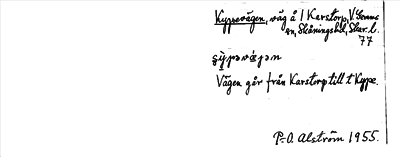 Kyppevägen, väg å 1 Karstorp, V. Gerum
sn, Skånings hd, Skar. l.
77
Vägen går från Karstorp till t Kyppe.
P.O. Alström 1955.